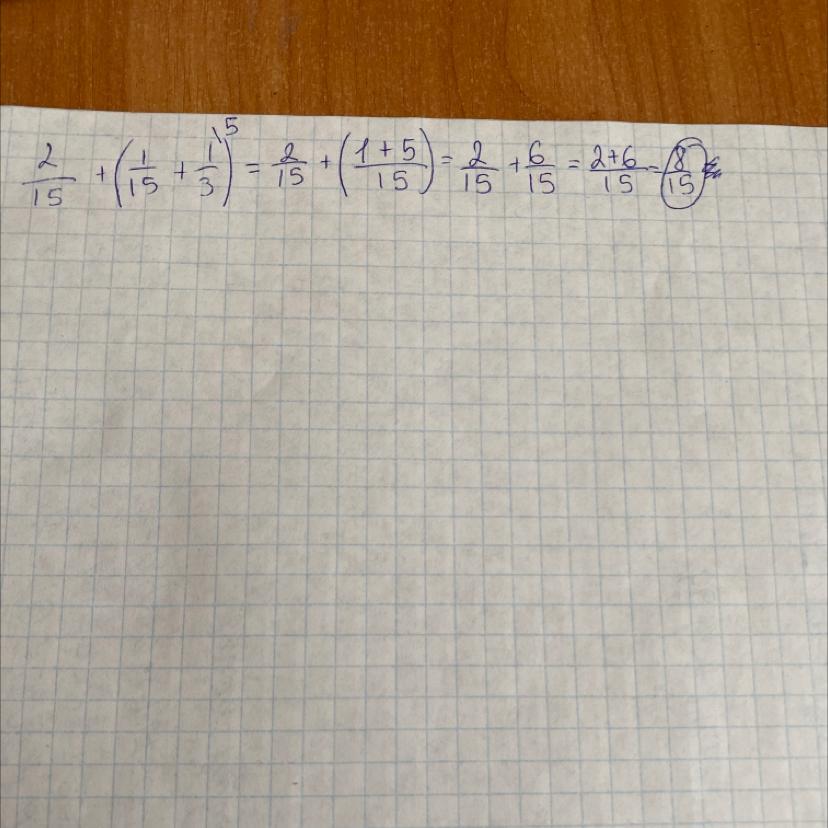 2/15 + (1/15 + 1/3\5) = 2/15 + (1+5/15) = 2/15 + 6/15 = 2+6/15 = 8/15